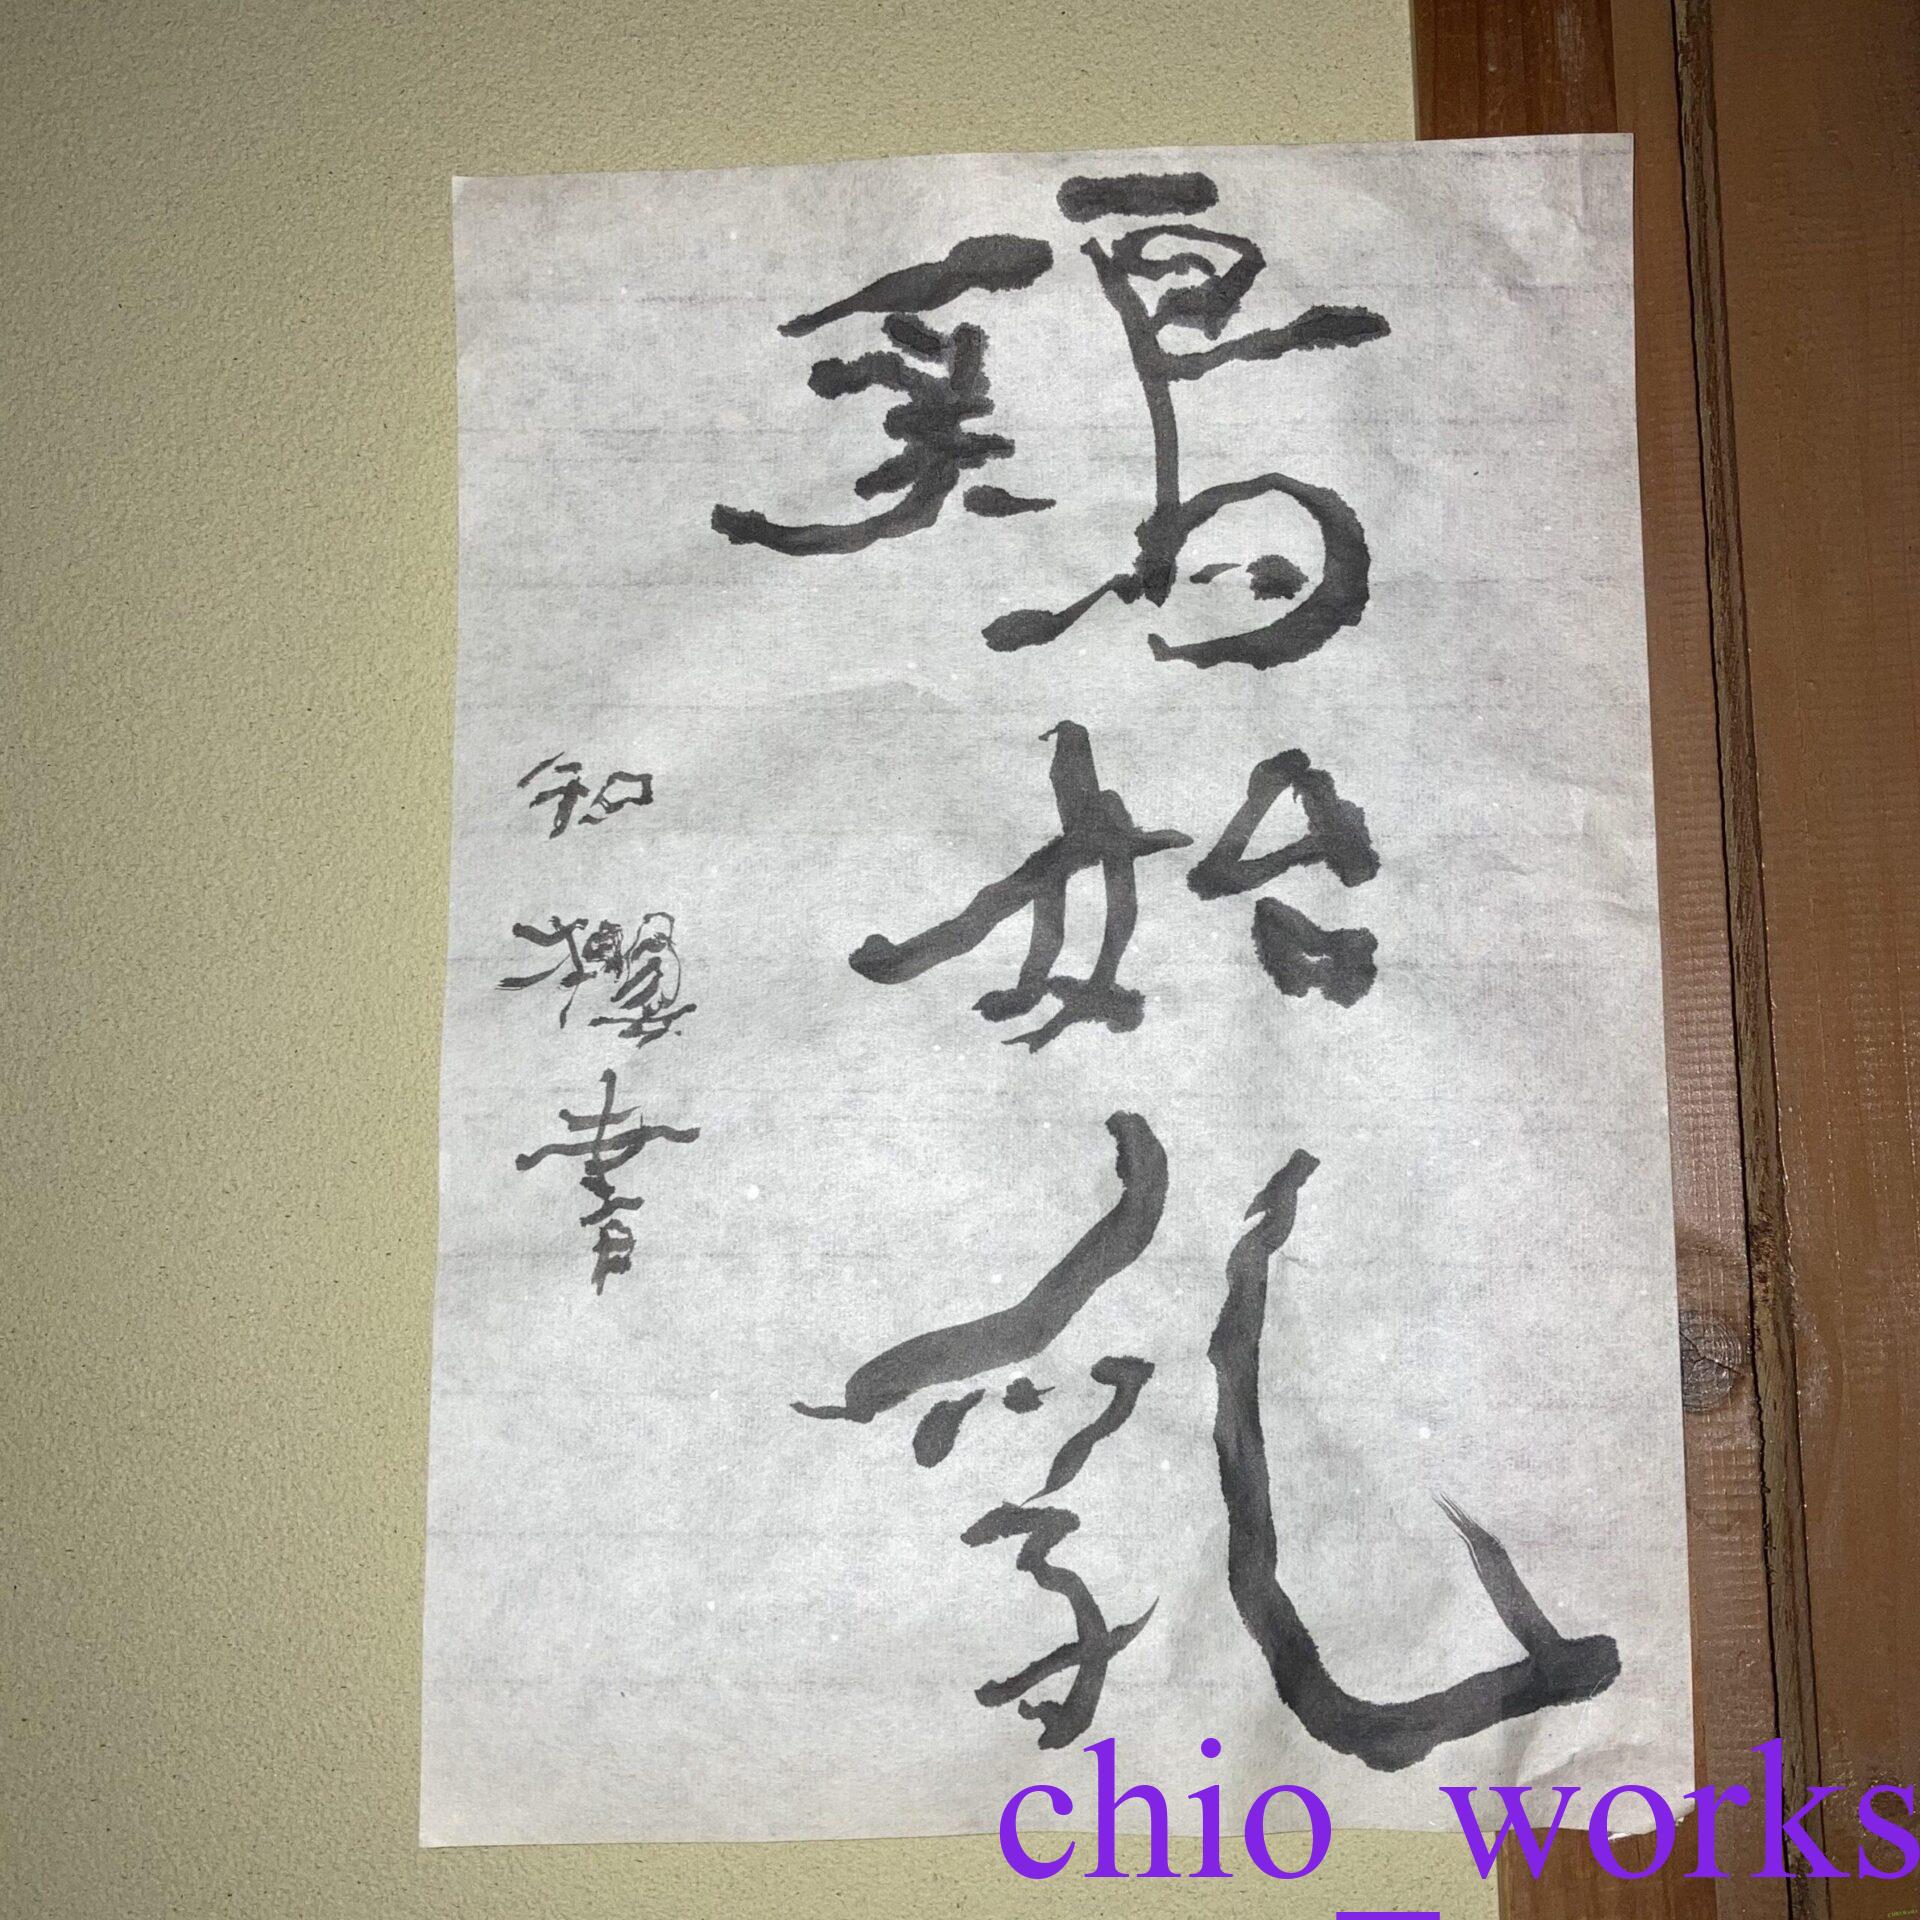 鶏始乳
和櫻書
chio_works